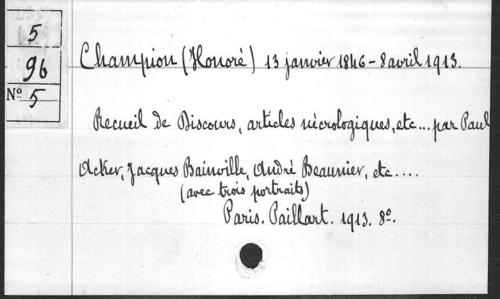 5
96
N° 5
Champion (Honoré) 13 janvier 1846 - 8 avril 1913.
Recueil de Discours, articles nécrologiques, etc... par Paul
Acker, Jacques Bainville, André Beaunier, etc....
(avec trois portraits)
Paris. Paillart. 1913. 8°.